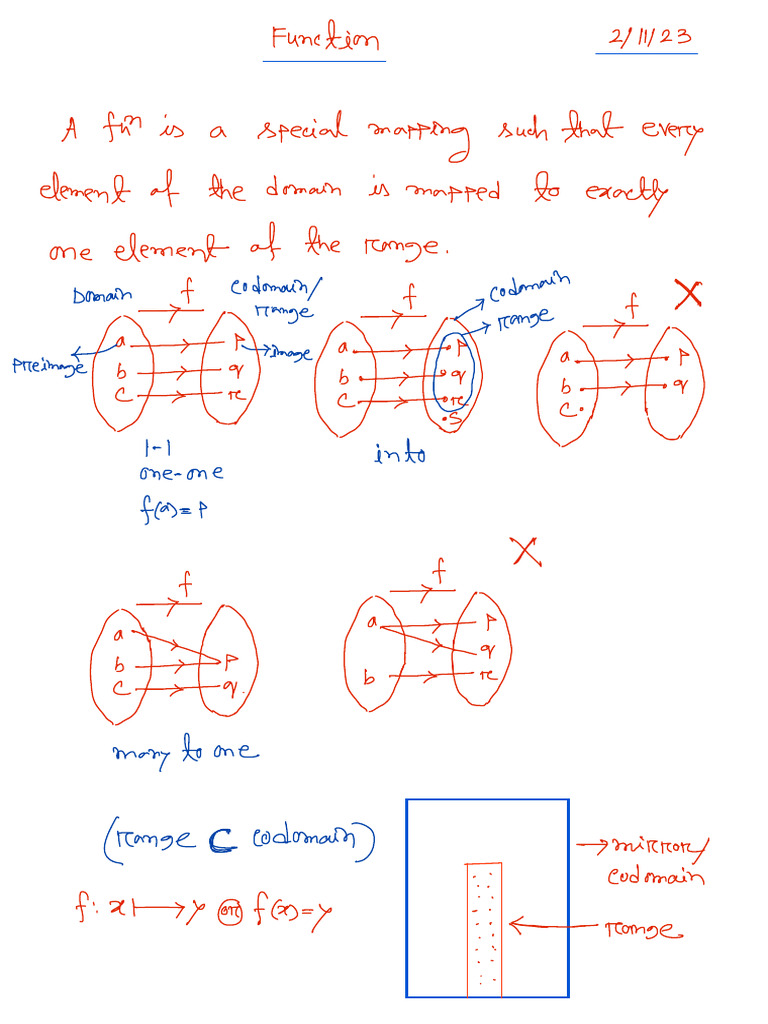 Function
2/11/23
A fnⁿ is a special mapping such that every
element of the domain is mapped to exactly
one element of the range.
Domain
f
codomain/
range
preimage
a
b
c
p
q
r
image
1-1
one-one
f(a) = p
f
codomain
range
a
b
c
p
q
r
s
into
f
X
a
b
c
p
q
f
a
b
c
p
q
many to one
f
X
a
b
p
q
r
(range ⊂ codomain)
f: x ↦ y or f(x) = y
mirror/
codomain
range